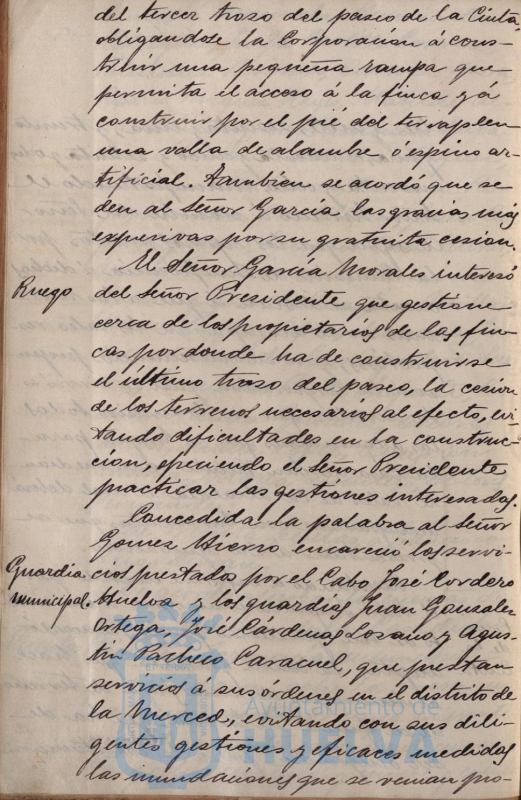 del tercer troso del paseo de la Cinta,
obligandose la Corporación á cons-
truir una pequeña rampa que
permita el acceso á la finca y á
construir por el pié del terraplen
una valla de alambre ó espino ar-
tificial. Tambien se acordó que se
den al Señor García las gracias más
expresivas por su gratuita cesion.
El Señor García Morales interesó
Ruego
del Señor Presidente que gestione
cerca de los propietarios de las fin-
cas por donde ha de construirse
el último troso del paseo, la cesion
de los terrenos necesarios al efecto, evi-
tando dificultades en la construc-
cion, ofreciendo el Señor Presidente
practicar las gestiones interesadas.
Concedida la palabra al Señor
Gomez Hierro encareció los servi-
Guardia
municipal.
cios prestados por el Cabo José Cordero
Huelva y los guardias Juan Gonzalez
Ortega, José Cárdenas Lozano y Agus-
tin Pacheco Caracuel, que prestan
servicios á sus órdenes en el distrito de
la Merced, evitando con sus dili-
gentes gestiones y eficaces medidas
las inundaciones que se venian pro-
Ayuntamiento de
HUELVA